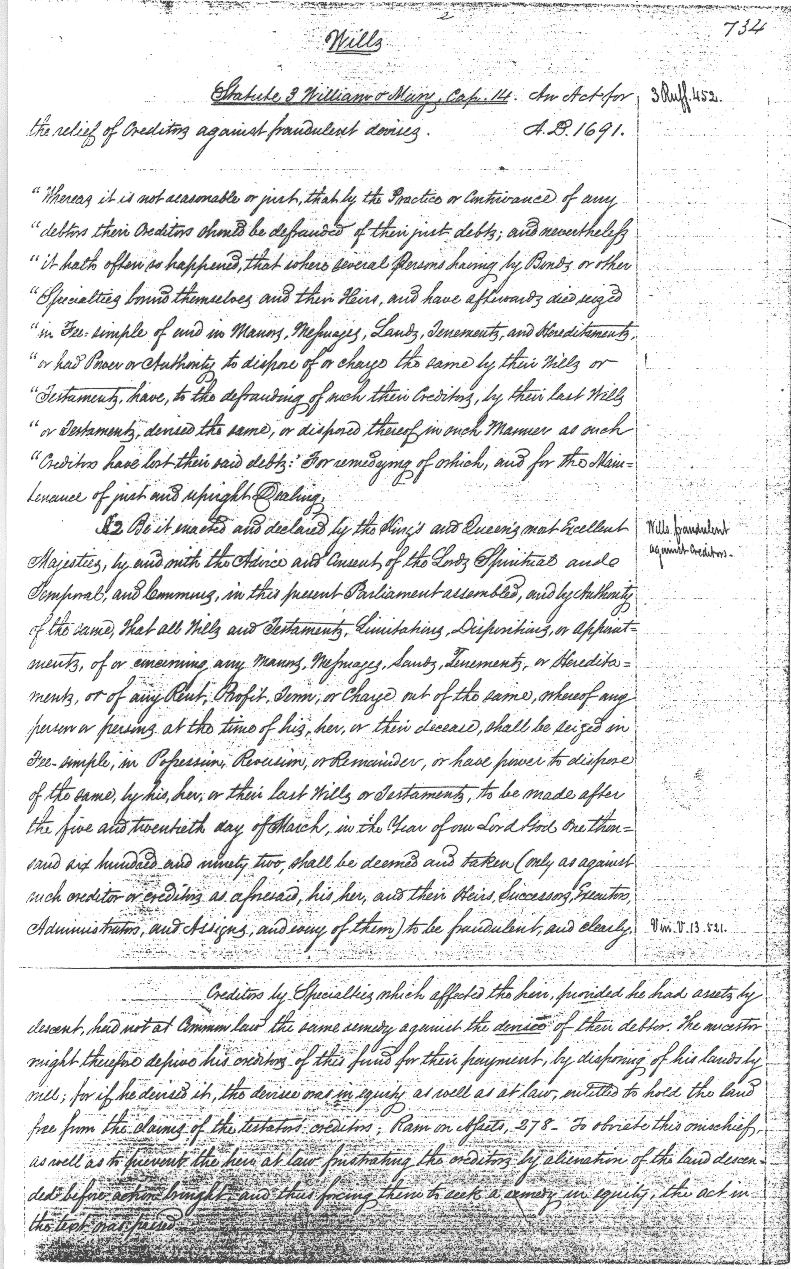 2
734
Wills
Statute 3 William & Mary, Cap. 14. An Act for
3 Ruff. 452.
the relief of Creditors against fraudulent devises. A.D. 1691.
"Whereas it is not reasonable or just, that by the Practice or Contrivance of any
"debtors their Creditors should be defrauded of their just debts; and nevertheless
"it hath often so happened, that where several Persons having by Bonds or other
"Specialties bound themselves and their Heirs, and have afterwards died seized
"in Fee-simple of and in Manors, Messuages, Lands, Tenements, and Hereditaments,
"or had Power or Authority to dispose of or charge the same by their Wills or
"Testaments, have, to the defrauding of such their Creditors, by their last Wills
"or Testaments, devised the same, or disposed thereof in such Manner as such
"Creditors have lost their said debts:' For remedying of which, and for the Main=
tenance of just and upright Dealing,
§2 Be it enacted and declared by the King's and Queen's most Excellent
Wills fraudulent
against Creditors.
Majesties, by and with the Advice and Consent of the Lords Spiritual and
Temporal, and Commons, in this present Parliament assembled, and by Authority
of the same, That all Wills and Testaments, Limitations, Dispositions, or Appoint=
ments, of or concerning any Manors, Messuages, Lands, Tenements, or Heredita=
ments, or of any Rent, Profit, Term, or Charge out of the same, whereof any
person or persons at the time of his, her, or their decease, shall be seized in
Fee-simple, in Possession, Reversion, or Remainder, or have power to dispose
of the same, by his, her, or their last Wills or Testaments, to be made after
the five and twentieth day of March, in the Year of our Lord God One thou=
sand six hundred and ninety two, shall be deemed and taken (only as against
such creditor or creditors as aforesaid, his, her, and their Heirs, Successors, Executors,
Administrators, and Assigns, and every of them) to be fraudulent, and clearly,
Vin. V. 13. 521.
Creditors by Specialties which affected the heir, provided he had assets by
descent, had not at Common law the same remedy against the devisee of their debtor. The ancestor
might therefore deprive his creditors of this fund for their payment, by disposing of his lands by
will; for if he devised it, the devisee was in equity as well as at law, entitled to hold the land
free from the claims of the testators creditors; Ram on Assets, 278 - To obviate this mischief,
as well as to prevent the heir at law frustrating the creditors by alienation of the land descen-
ded before action brought, and thus forcing them to seek a remedy in equity, the act in
the text was passed